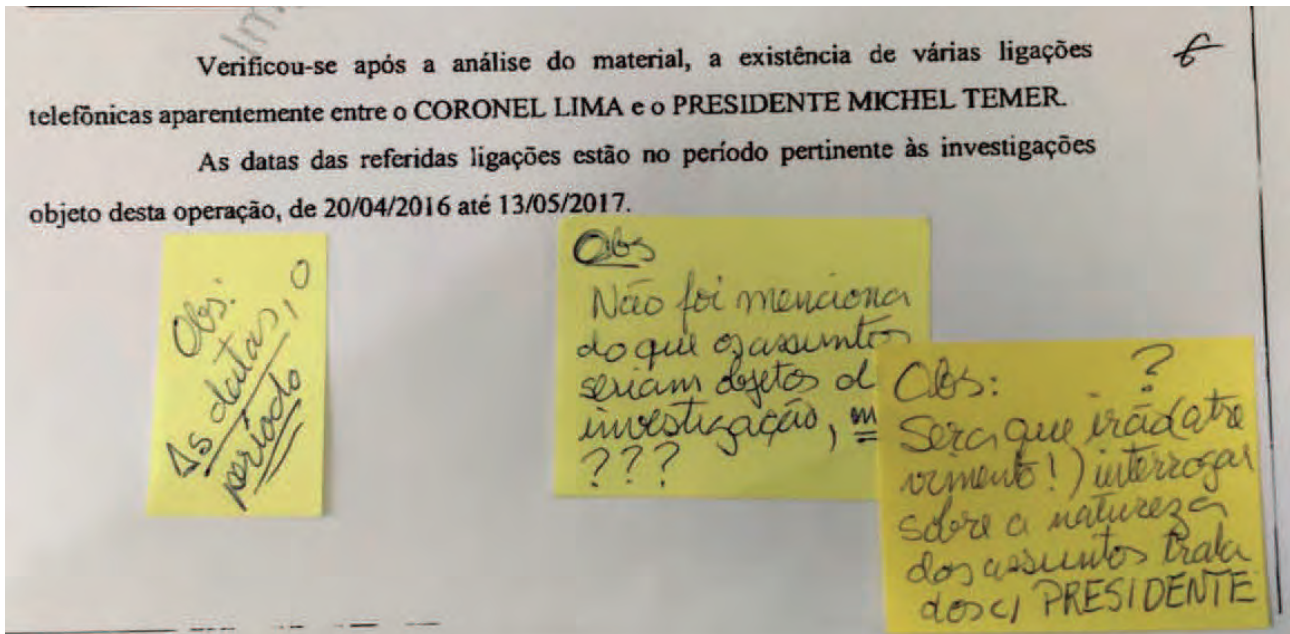 Verificou-se após a análise do material, a existência de várias ligações
telefônicas aparentemente entre o CORONEL LIMA e o PRESIDENTE MICHEL TEMER.
As datas das referidas ligações estão no período pertinente às investigações
objeto desta operação, de 20/04/2016 até 13/05/2017.
Obs:
As datas, o
período
Obs
Não foi menciona
do que os assuntos
seriam objetos d
investigação, m
???
Obs: ?
Será que irão (atre
vimento!) interrogar
sobre a natureza
dos assuntos trata
dos c/ PRESIDENTE